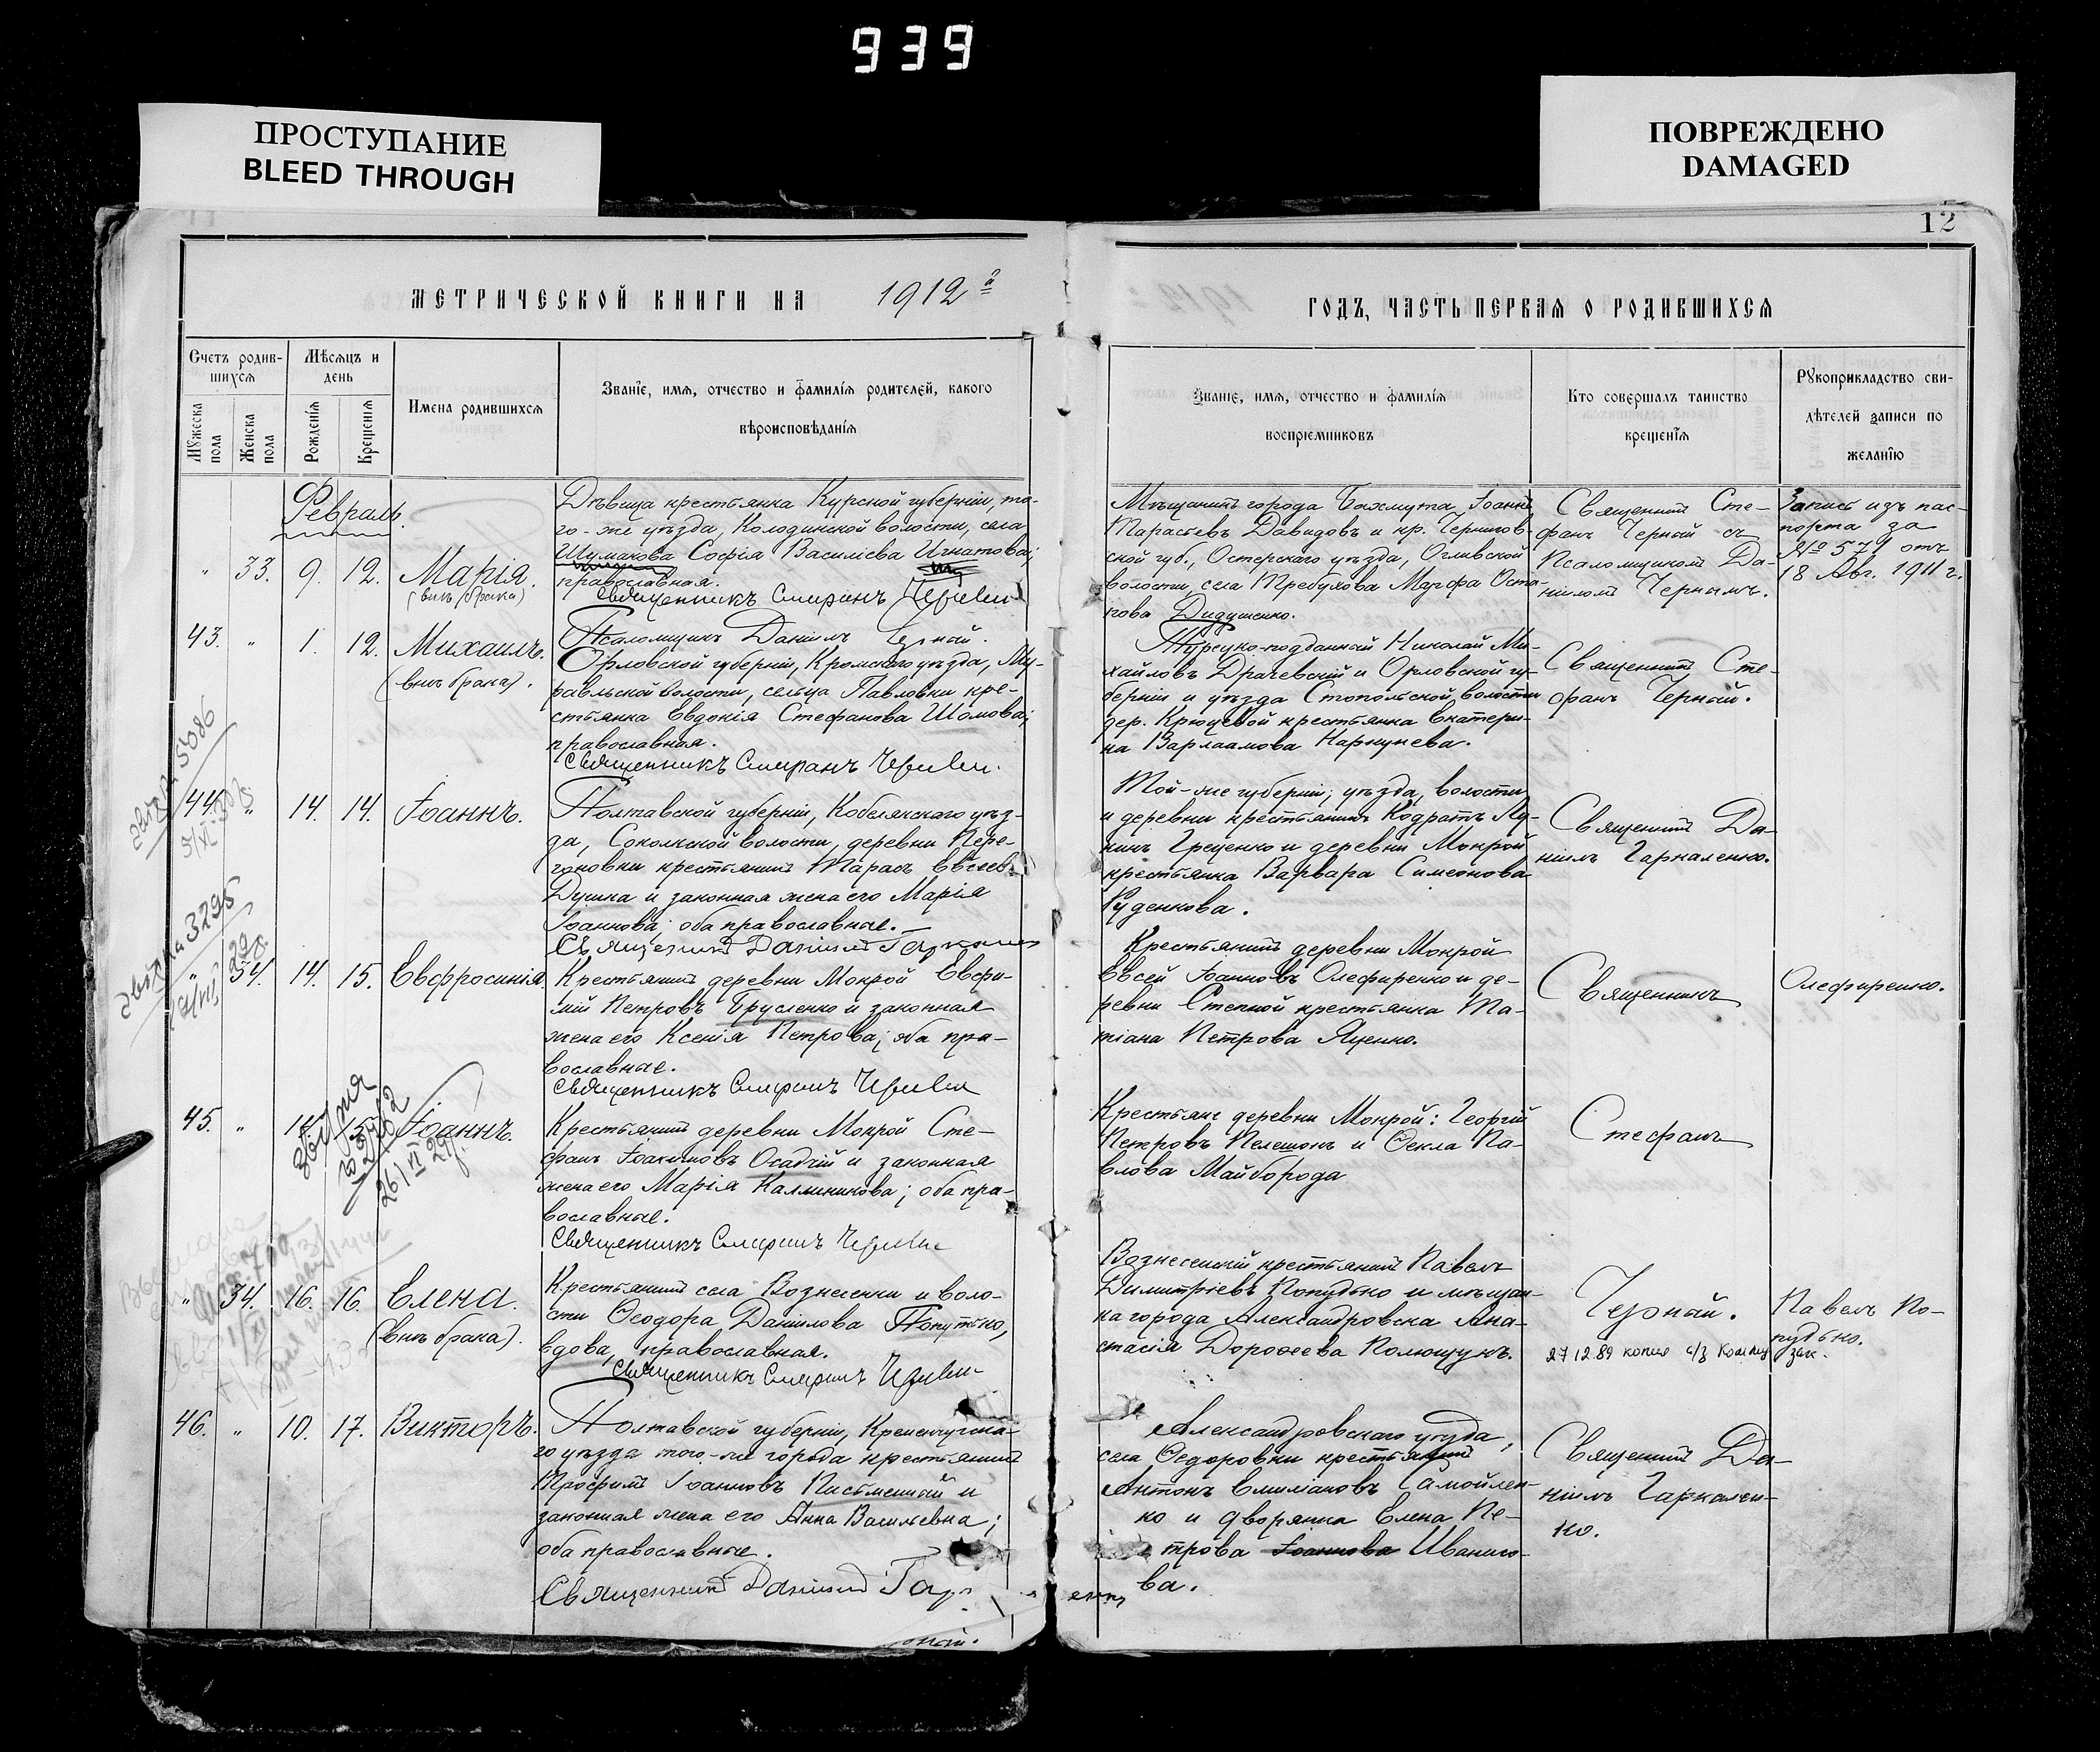 939
ПРОСТУПАНИЕ
BLEED THROUGH
ПОВРЕЖДЕНО
DAMAGED
12
МЕТРИЧЕСКОЙ КНИГИ НА 1912 й
ГОДЪ, ЧАСТЬ ПЕРВАЯ О РОДИВШИХСЯ
Счетъ родив-
шихся
Мужеска пола
Женска пола
Мѣсяцъ и
день
Рожденія
Крещенія
Имена родившихся
Званіе, имя, отчество и фамилія родителей, какого
вѣроисповѣданія
Званіе, имя, отчество и фамилія
воспріемниковъ
Кто совершалъ таинство
крещенія
Рукоприкладство сви-
дѣтелей записи по
желанію
Февраль.
" 33. 9. 12. Марія.
(внѣ брака)
Дѣвица крестьянка Курской губерніи, то-
го-же уѣзда, Колодинской волости, села
Шумакова Софія Василіева Игнатова;
православная.
Священникъ Стефанъ Черный
Мѣщанинъ города Бахмута Іоаннъ
Тарасьевъ Давидовъ и кр. Чернигов-
ской губ., Остерскаго уѣзда,
волости, села Требухова Марфа Оста-
пова Дидушенко.
Священникъ Сте-
фанъ Черный съ
Псаломщикомъ Да-
ніиломъ Чернымъ.
Запись изъ пас-
порта за
№ 571 отъ
18 Авг. 1911 г.
43. " 1. 12. Михаилъ.
(внѣ брака).
Псаломщикъ Даніилъ Черный.
Орловской губерніи, Кромскаго уѣзда, Му-
равльской волости, сельца Павловки кре-
стьянка Евдокія Стефанова Шомова;
православная.
Священникъ Стефанъ Черный.
Турецко-подданный Николай Ми-
хайловъ Драчевскій и Орловской гу-
берніи и уѣзда волости
дер. Крюцевой крестьянка Екатери-
на Варлаамова Карпунева.
Священникъ Сте-
фанъ Черный.
44. " 14. 14. Іоаннъ.
Полтавской губерніи, Кобелякскаго уѣз-
да, Сокольской волости, деревни Пере-
гоновки крестьянинъ Тарасъ
Душка и законная жена его Марія
Іоаннова; оба православные.
Священникъ Даніилъ
Той-же губерніи, уѣзда, волости
и деревни крестьянинъ Кодратъ Лу-
кинъ Греценко и деревни Мокрой
крестьянка Варвара Симеонова
Руденкова.
Священникъ Да-
ніилъ Гаркаленко.
" 54. 14. 15. Евфросинія.
Крестьянинъ деревни Мокрой Евфи-
мій Петровъ Брусленко и законная
жена его Ксенія Петрова; оба пра-
вославные.
Священникъ Стефанъ Черный
Крестьянинъ деревни Мокрой
Евсей Іоанновъ Олефиренко и де-
ревни Степной крестьянка Та-
тіана Петрова Яценко.
Священникъ
Олефиренко.
45. " 15. Іоаннъ.
Крестьянинъ деревни Мокрой Сте-
фанъ Іоакимовъ Осадчій и законная
жена его Марія Каллиникова; оба пра-
вославные.
Священникъ Стефанъ Черный
Крестьяне деревни Мокрой: Георгій
Петровъ Пелешонъ и Ѳекла Па-
влова Майборода
Стефанъ
" 34. 16. 16. Елена.
(внѣ брака).
Крестьянинъ села Вознесенки и воло-
сти Ѳеодора Даніилова Попутько,
вдова, православная.
Священникъ Стефанъ Черный
Вознесенскій крестьянинъ Павелъ
Димитріевъ Попудько и мѣщан-
ка города Александровска Ана-
стасія Дороѳеева Полющукъ.
Черный.
Павелъ По-
пудько.
27 12.89 копия с/з
46. " 10. 17. Викторъ.
Полтавской губерніи, Кременчугска-
го уѣзда того-же города крестьянинъ
Трофимъ Іоанновъ Письменный и
законная жена его Анна Васильевна;
оба православные.
Священникъ Даніилъ
Александровскаго уѣзда,
села Ѳедоровки крестьянинъ
Антонъ Емиліановъ Самойлен-
ко и дворянка Елена Пе-
трова Іоаннова Иванисо-
ва.
Священникъ Да-
ніилъ Гаркален-
ко.